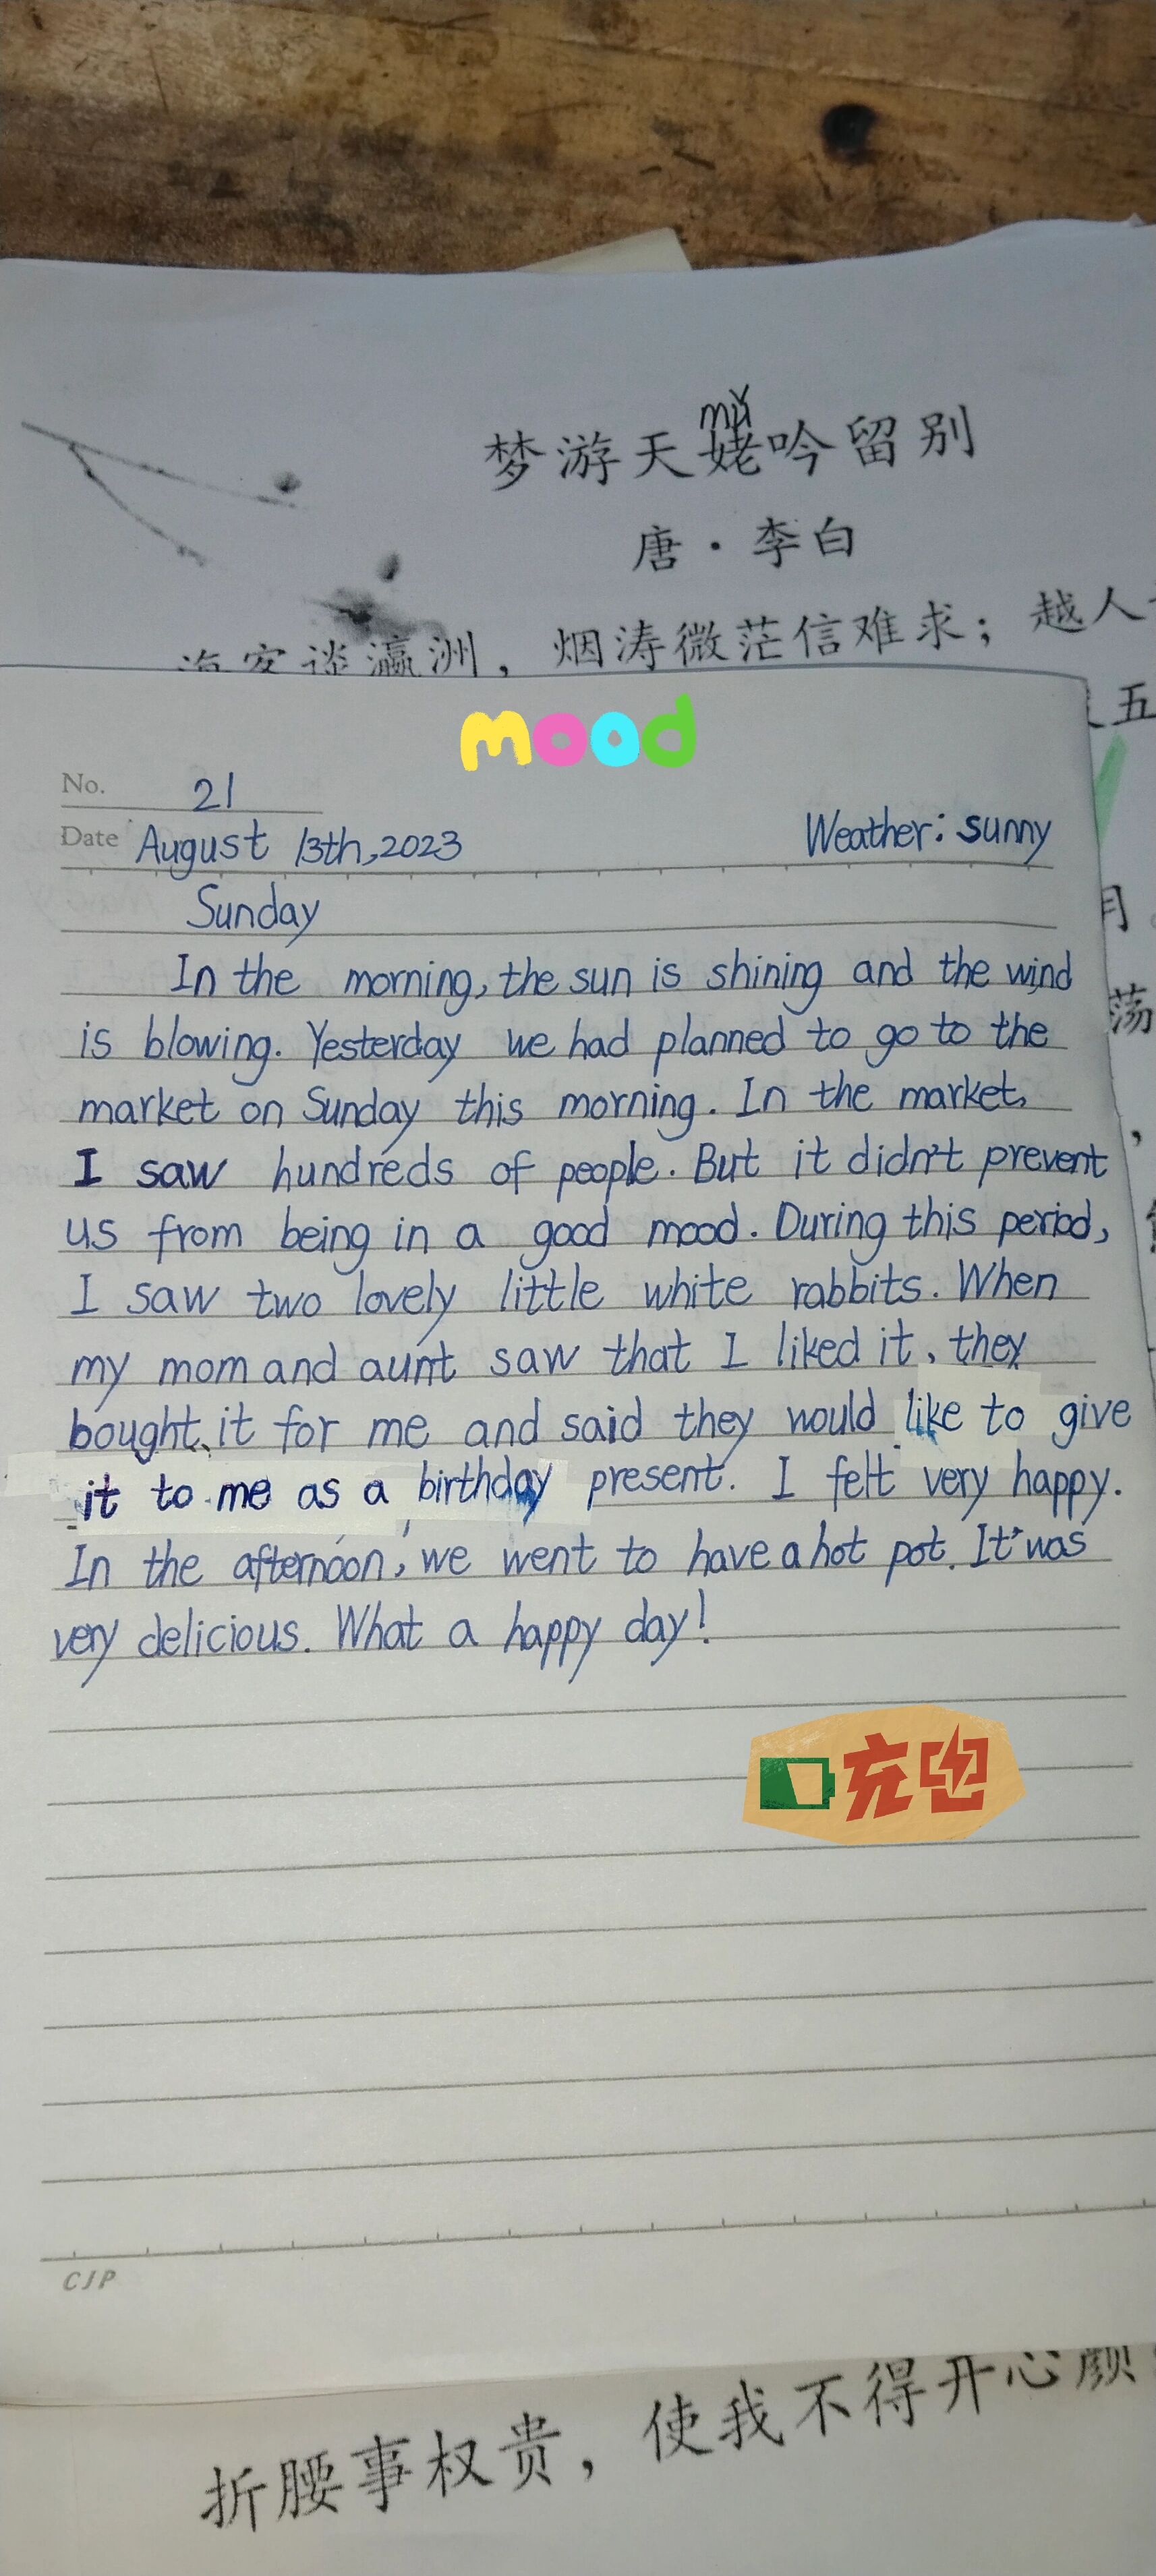 mǔ
梦游天姥吟留别
唐·李白
海客谈瀛洲，烟涛微茫信难求；越人
五
mood
No. 21
Date August 13th,2023 Weather: sunny
月。
Sunday
In the morning, the sun is shining and the wind
荡
is blowing. Yesterday we had planned to go to the
market on Sunday this morning. In the market,
I saw hundreds of people. But it didn't prevent
us from being in a good mood. During this period,
I saw two lovely little white rabbits. When
my mom and aunt saw that I liked it, they
bought it for me and said they would like to give
it to me as a birthday present. I felt very happy.
In the afternoon, we went to have a hot pot. It was
very delicious. What a happy day!
充电
CJP
折腰事权贵，使我不得开心颜